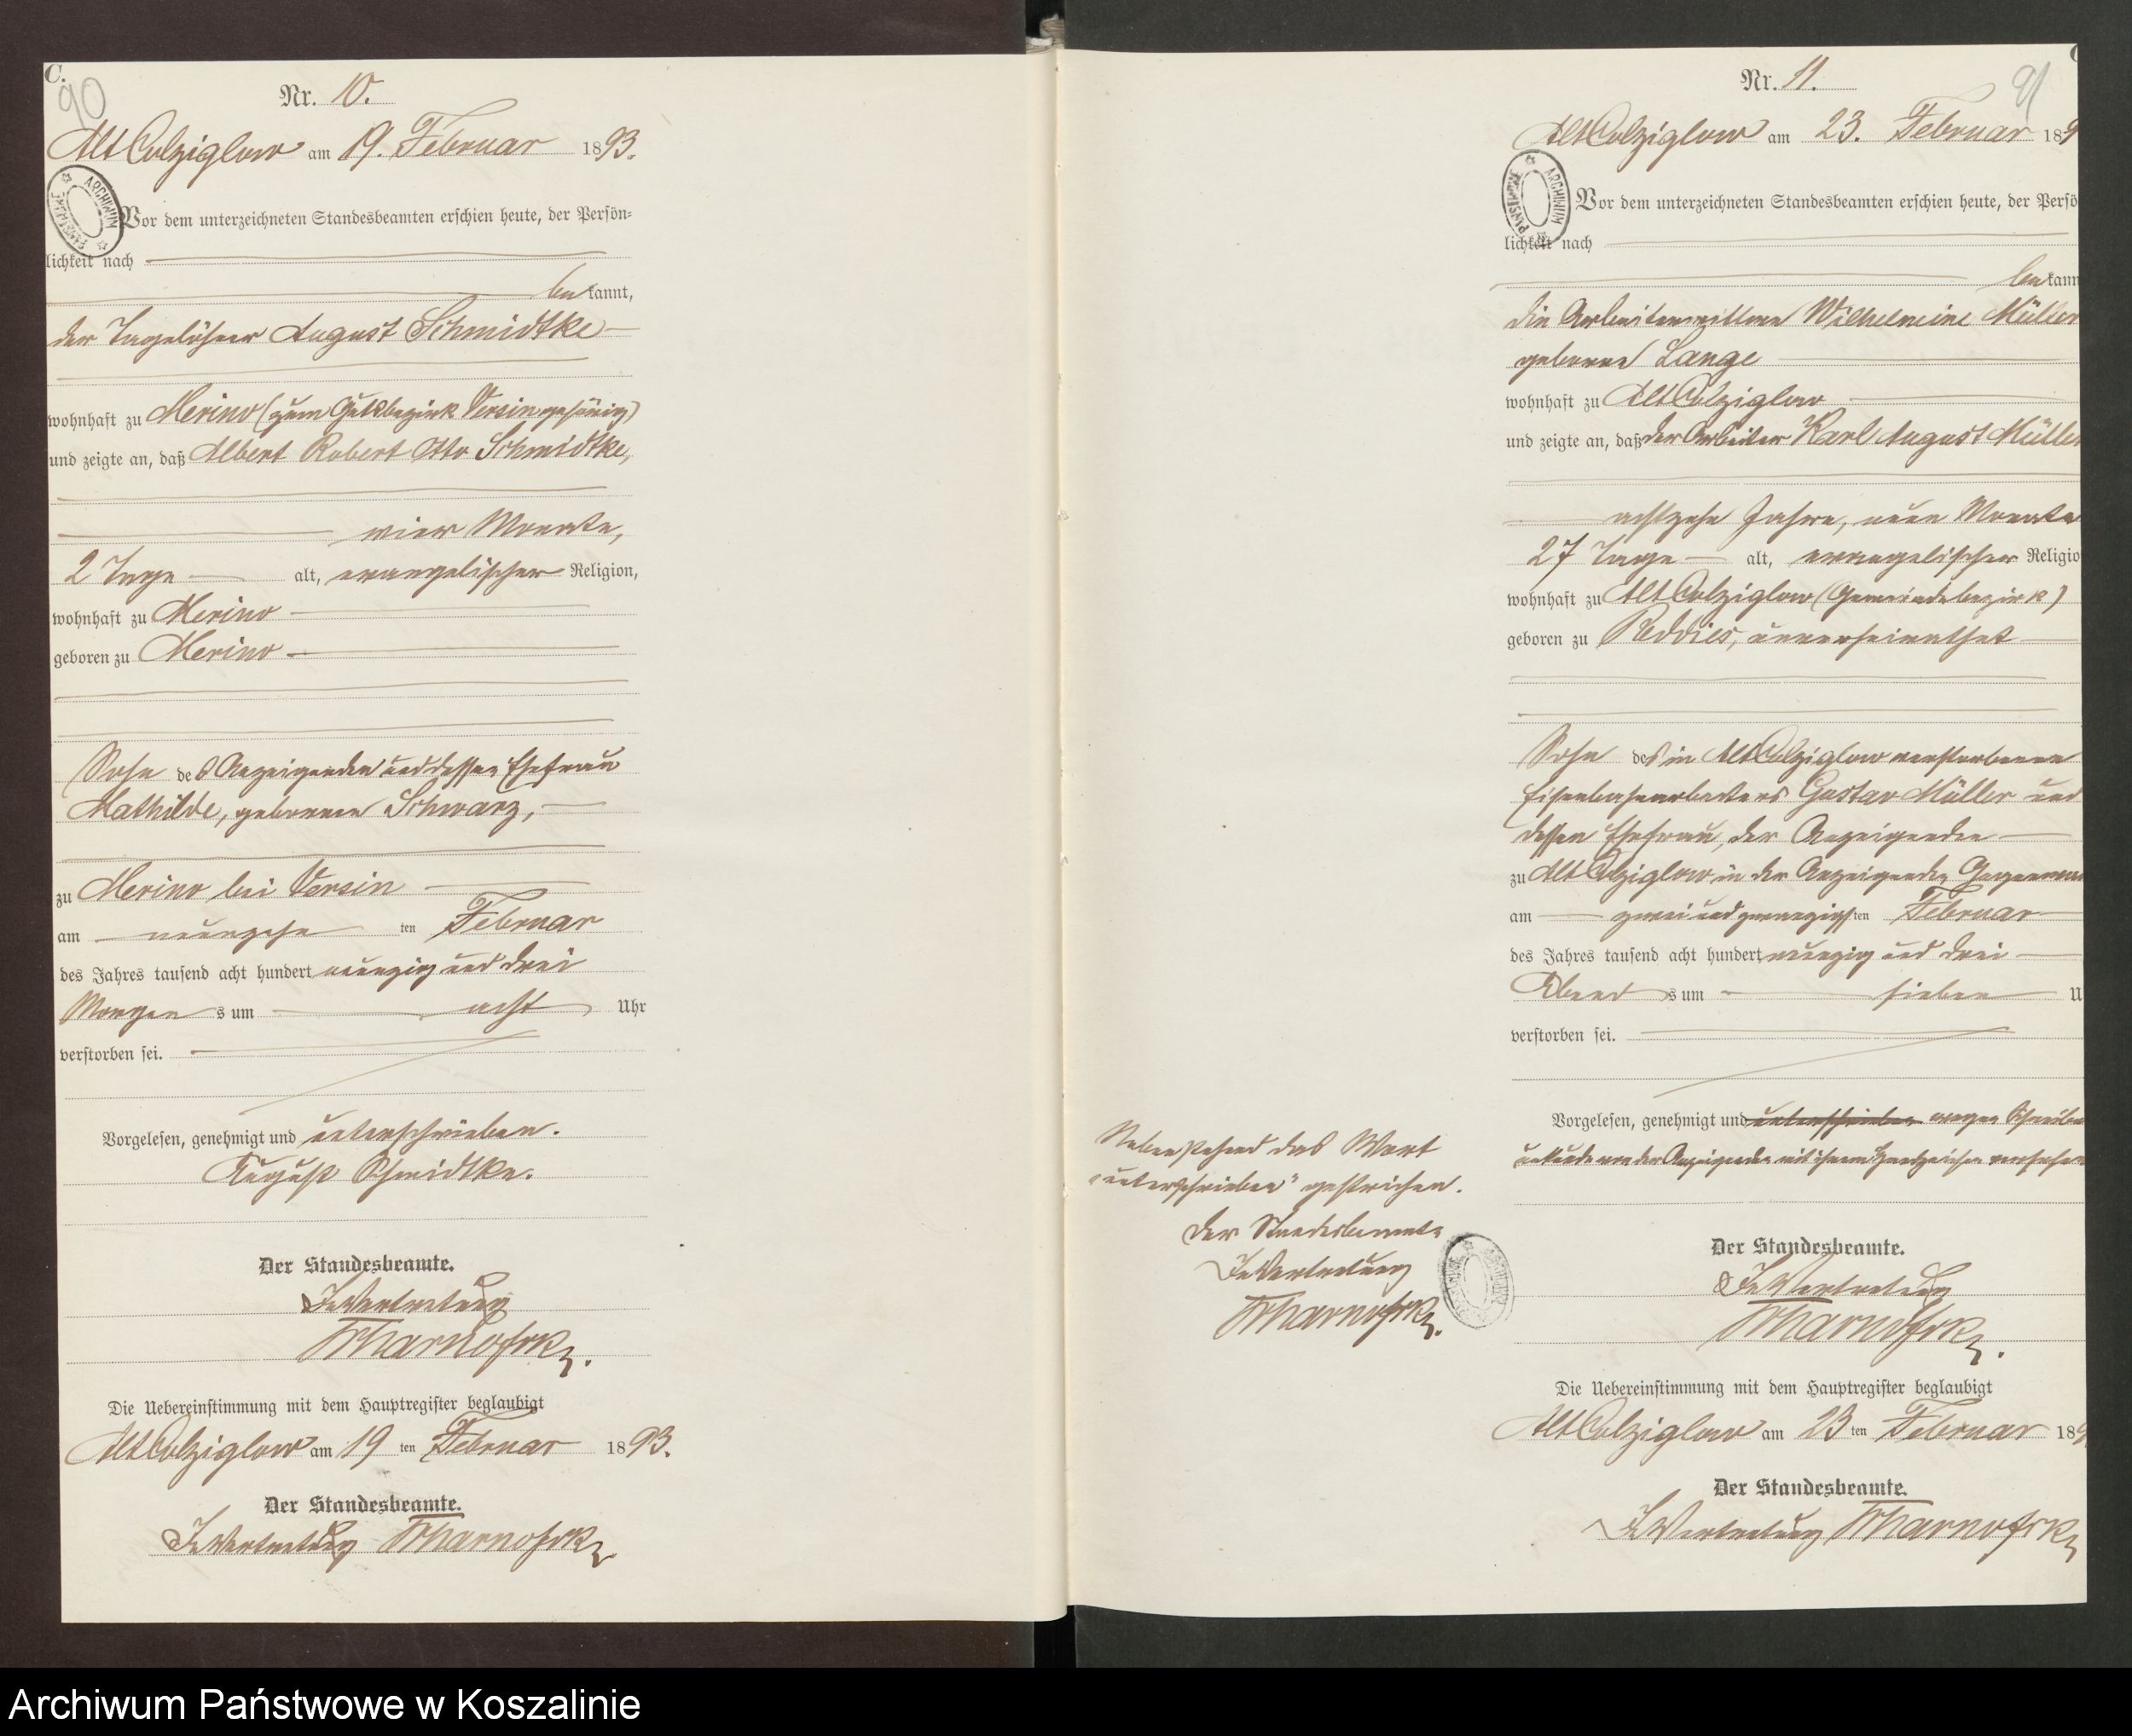 C.
90
Nr. 10.
Alt Colziglow am 19. Februar 1893.
ARCHIWUM PAŃSTWOWE
Vor dem unterzeichneten Standesbeamten erschien heute, der Persön-
lichkeit nach
bekannt,
der Tagelöhner August Schmidtke
wohnhaft zu Merino (zum Gutsbezirk Versin gehörig)
und zeigte an, daß Albert Robert Otto Schmidtke,
vier Monate,
2 Tage alt, evangelischer Religion,
wohnhaft zu Merino
geboren zu Merino
Sohn des Anzeigenden und dessen Ehefrau
Mathilde, geborenen Schwarz,
zu Merino bei Versin
am neunzehnten Februar
des Jahres tausend acht hundert neunzig und drei
Morgens um acht Uhr
verstorben sei.
Vorgelesen, genehmigt und unterschrieben.
August Schmidtke.
Der Standesbeamte.
In Vertretung
Die Uebereinstimmung mit dem Hauptregister beglaubigt
Alt Colziglow am 19 ten Februar 1893.
Der Standesbeamte.
In Vertretung
Nr. 11.
91
Alt Colziglow am 23. Februar 189
ARCHIWUM PAŃSTWOWE
Vor dem unterzeichneten Standesbeamten erschien heute, der Persö
lichkeit nach
bekann
die Arbeiterwittwe Wilhelmine Müller
geborene Lange
wohnhaft zu Alt Colziglow
und zeigte an, daß der Arbeiter Karl August Müller
achtzehn Jahre, neun Monate
27 Tage alt, evangelischer Religio
wohnhaft zu Alt Colziglow (Gemeindebezirk)
geboren zu Reddies, unverheirathet
Sohn des in Alt Colziglow verstorbenen
Eisenbahnarbeiters Gustav Müller und
dessen Ehefrau, der Anzeigenden
zu Alt Colziglow in der Anzeigenden Gegenwar
am zwei und zwanzigsten Februar
des Jahres tausend acht hundert neunzig und drei
Abends um sieben U
verstorben sei.
Vorgelesen, genehmigt und unterschrieben wegen Schreibens
unkunde von der Anzeigenden mit ihrem Handzeichen versehen
Nebenstehend das Wort
"unterschrieben" gestrichen.
Der Standesbeamte
In Vertretung
Der Standesbeamte.
In Vertretung
Die Uebereinstimmung mit dem Hauptregister beglaubigt
Alt Colziglow am 23 ten Februar 189
Der Standesbeamte.
In Vertretung
Archiwum Państwowe w Koszalinie